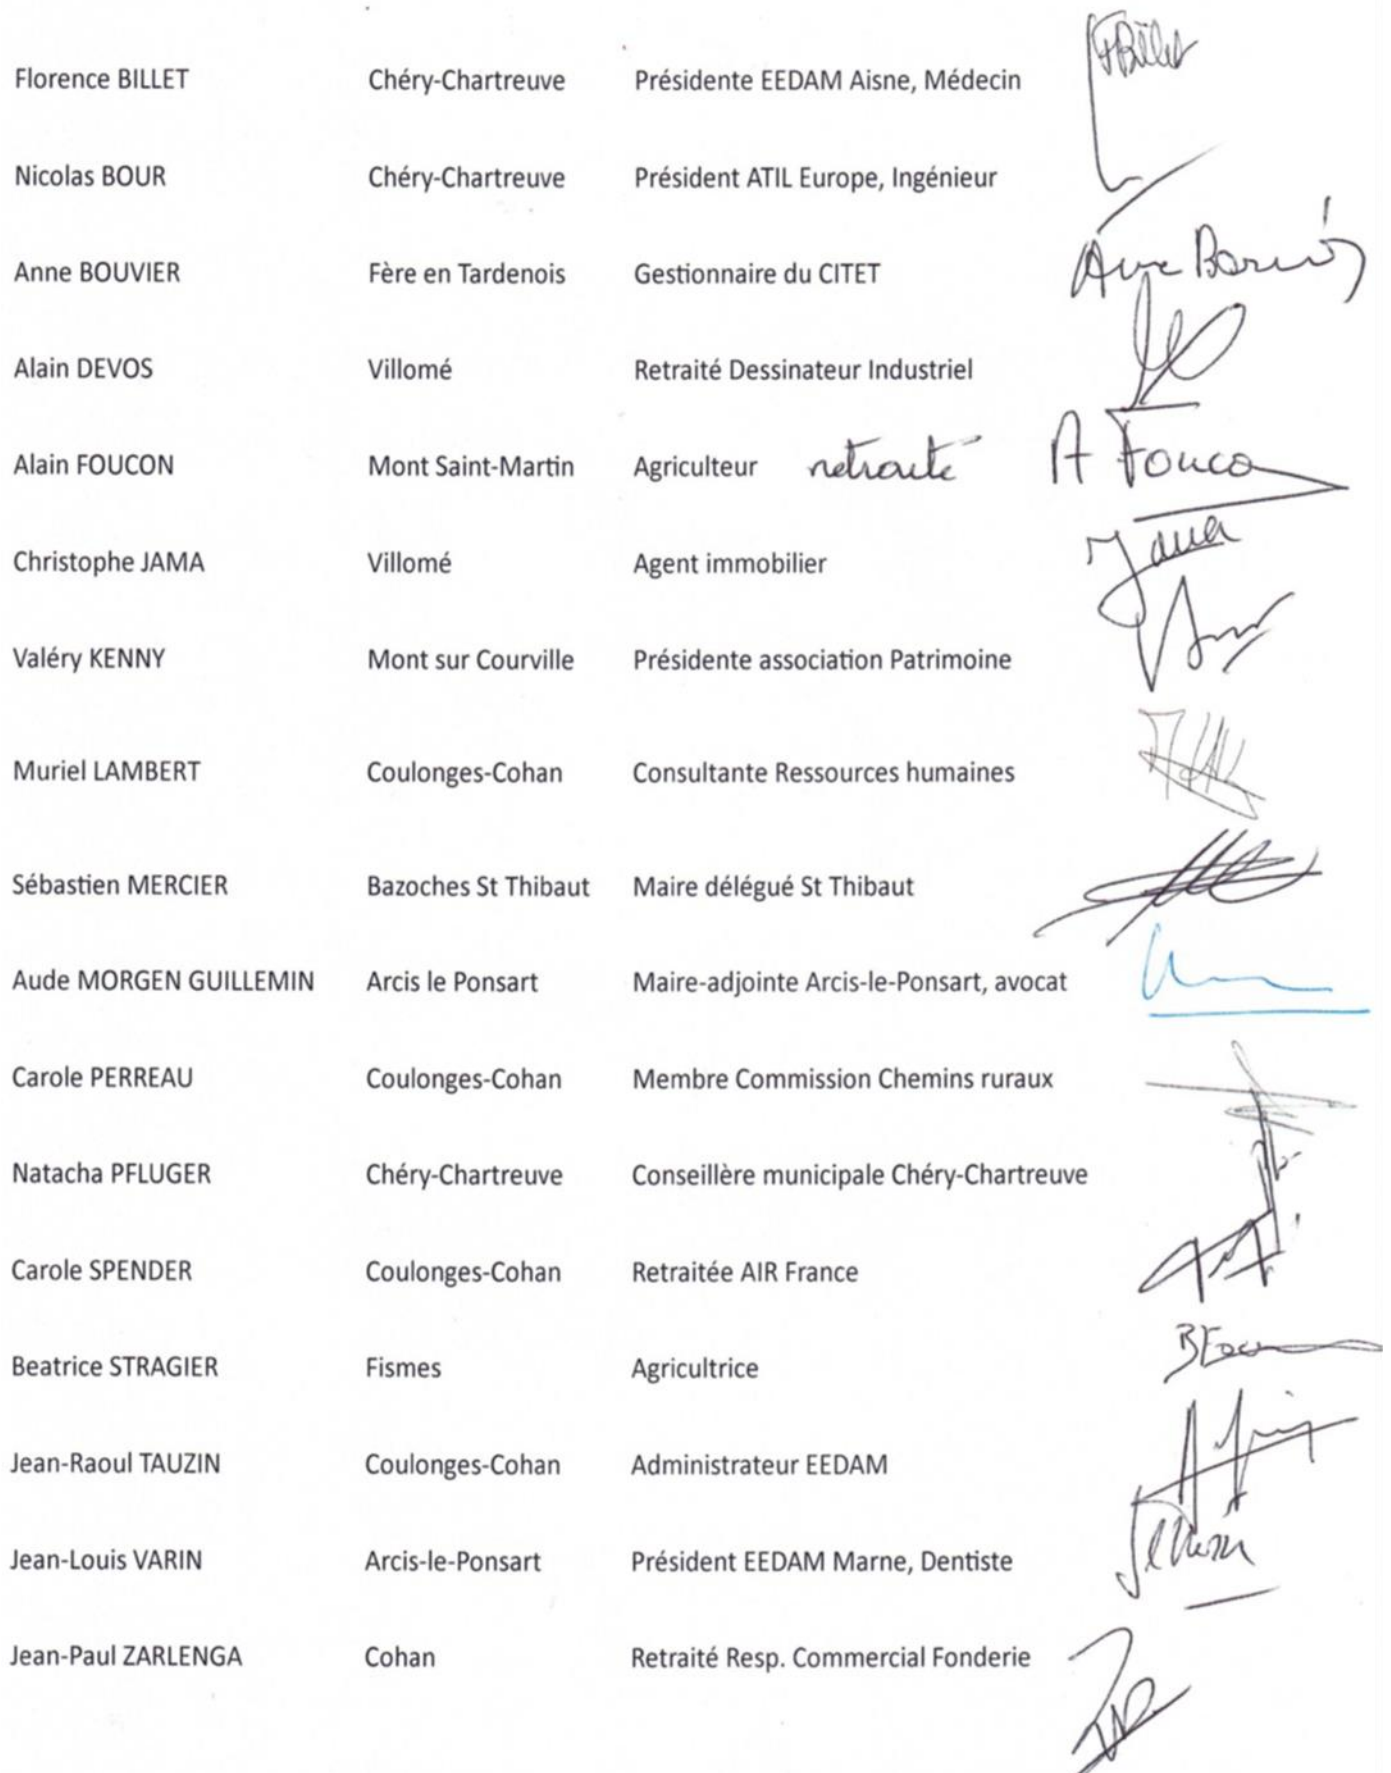 Florence BILLET Chéry-Chartreuve Présidente EEDAM Aisne, Médecin FBillet
Nicolas BOUR Chéry-Chartreuve Président ATIL Europe, Ingénieur
Anne BOUVIER Fère en Tardenois Gestionnaire du CITET Anne
Alain DEVOS Villomé Retraité Dessinateur Industriel
Alain FOUCON Mont Saint-Martin Agriculteur retraité A Fouco
Christophe JAMA Villomé Agent immobilier Jama
Valéry KENNY Mont sur Courville Présidente association Patrimoine
Muriel LAMBERT Coulonges-Cohan Consultante Ressources humaines
Sébastien MERCIER Bazoches St Thibaut Maire délégué St Thibaut
Aude MORGEN GUILLEMIN Arcis le Ponsart Maire-adjointe Arcis-le-Ponsart, avocat
Carole PERREAU Coulonges-Cohan Membre Commission Chemins ruraux
Natacha PFLUGER Chéry-Chartreuve Conseillère municipale Chéry-Chartreuve
Carole SPENDER Coulonges-Cohan Retraitée AIR France
Beatrice STRAGIER Fismes Agricultrice
Jean-Raoul TAUZIN Coulonges-Cohan Administrateur EEDAM
Jean-Louis VARIN Arcis-le-Ponsart Président EEDAM Marne, Dentiste
Jean-Paul ZARLENGA Cohan Retraité Resp. Commercial Fonderie